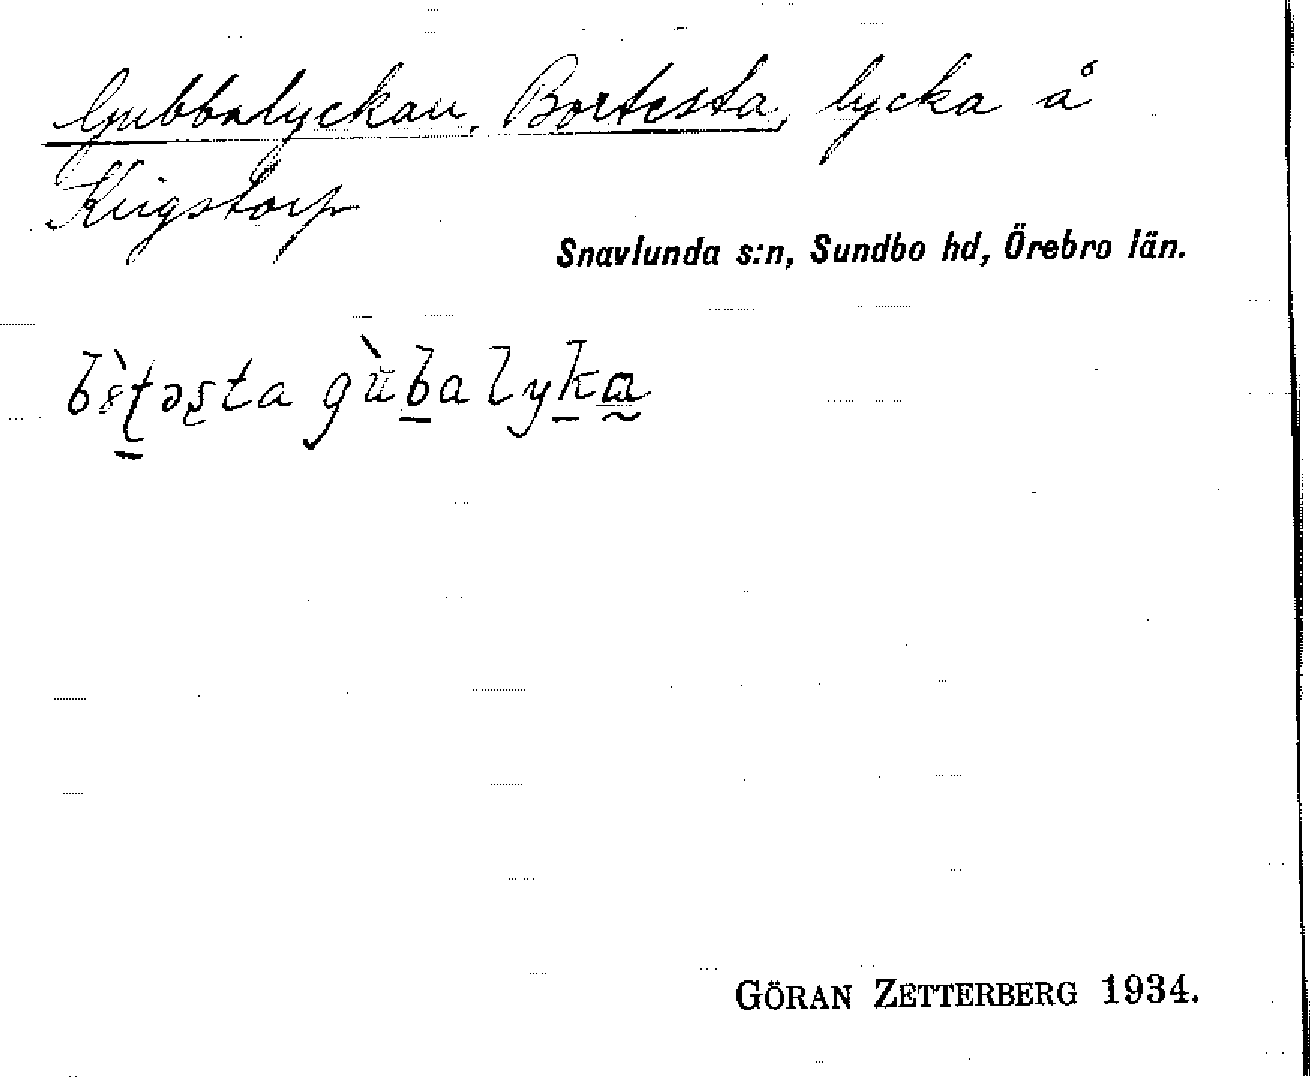 Gubbalyckan, Bortesta, lycka å
Kingstorp
Snavlunda s:n, Sundbo hd, Örebro län.
GÖRAN ZETTERBERG 1934.